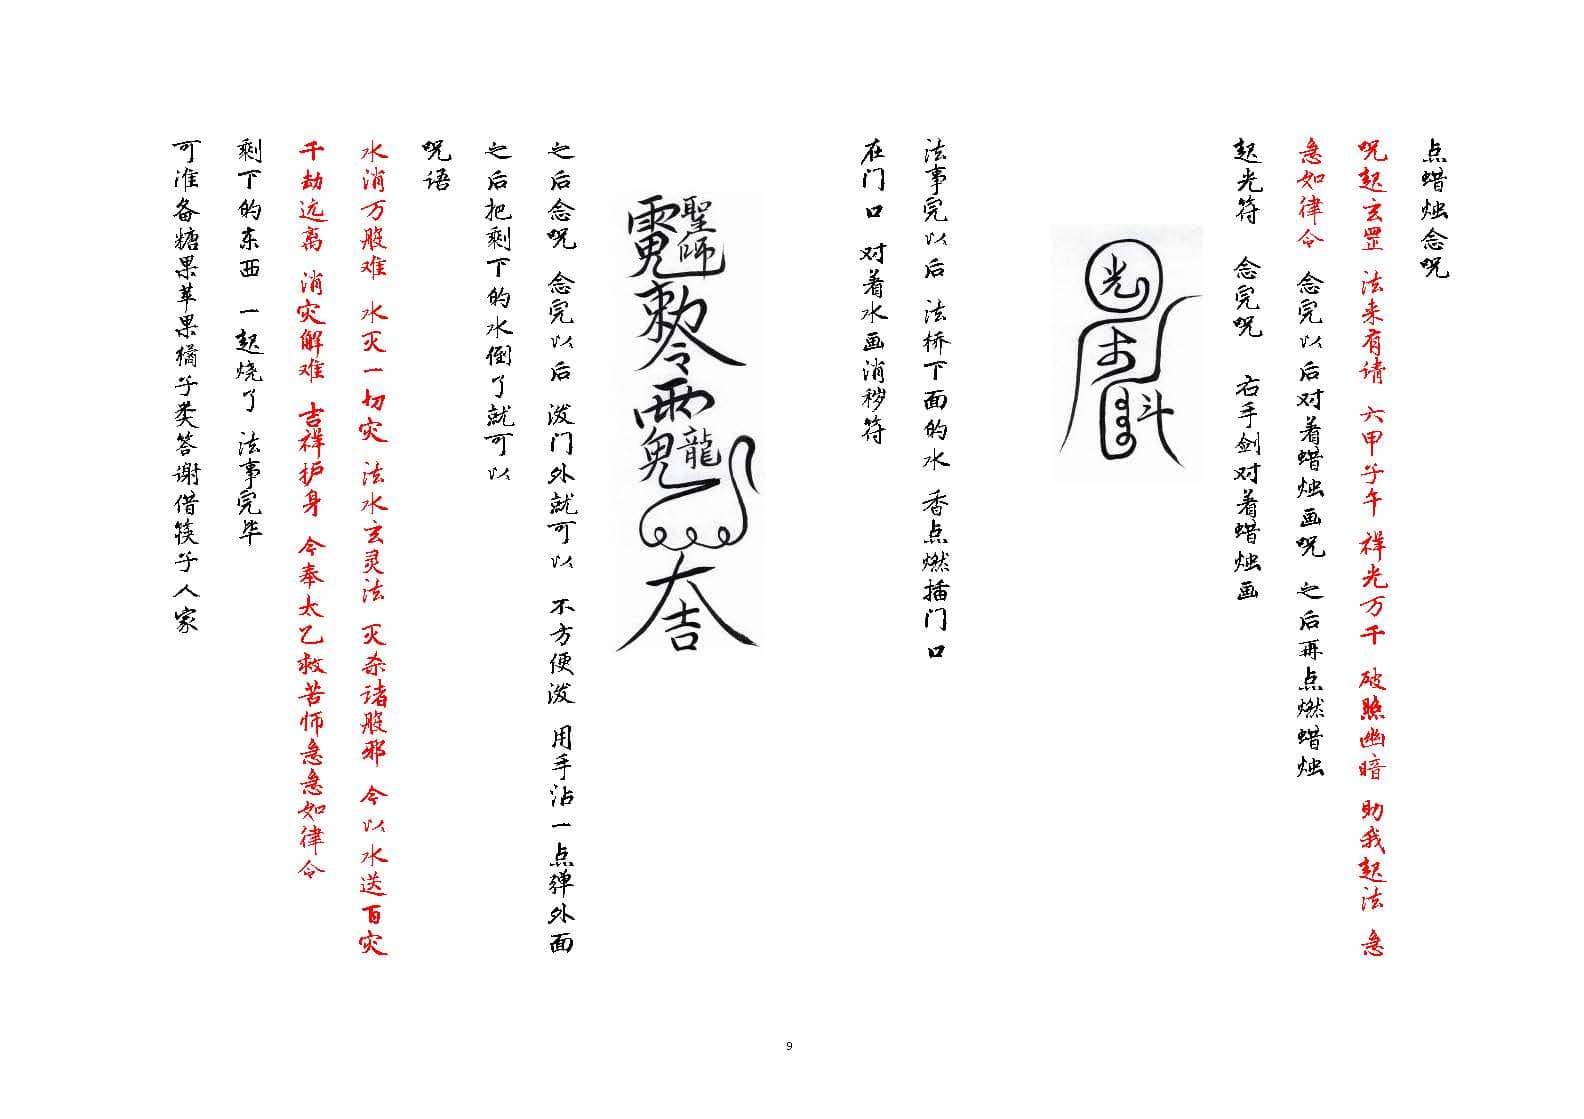 点蜡烛念咒
咒起玄罡 法来有请 六甲子午 祥光万千 破照幽暗 助我起法 急
急如律令 念完以后对着蜡烛画咒 之后再点燃蜡烛
起光符 念完咒 右手剑对着蜡烛画
光
斗
法事完以后 法桥下面的水 香点燃插门口
在门口 对着水画消秽符
聖師
敕令
龍
大吉
之后念咒 念完以后 泼门外就可以 不方便泼 用手沾一点弹外面
之后把剩下的水倒了就可以
咒语
水消万般难 水灭一切灾 法水玄灵法 灭杀诸般邪 今以水送百灾
千劫远离 消灾解难 吉祥护身 今奉太乙救苦师急急如律令
剩下的东西 一起烧了 法事完毕
可准备糖果苹果橘子类答谢借筷子人家
9